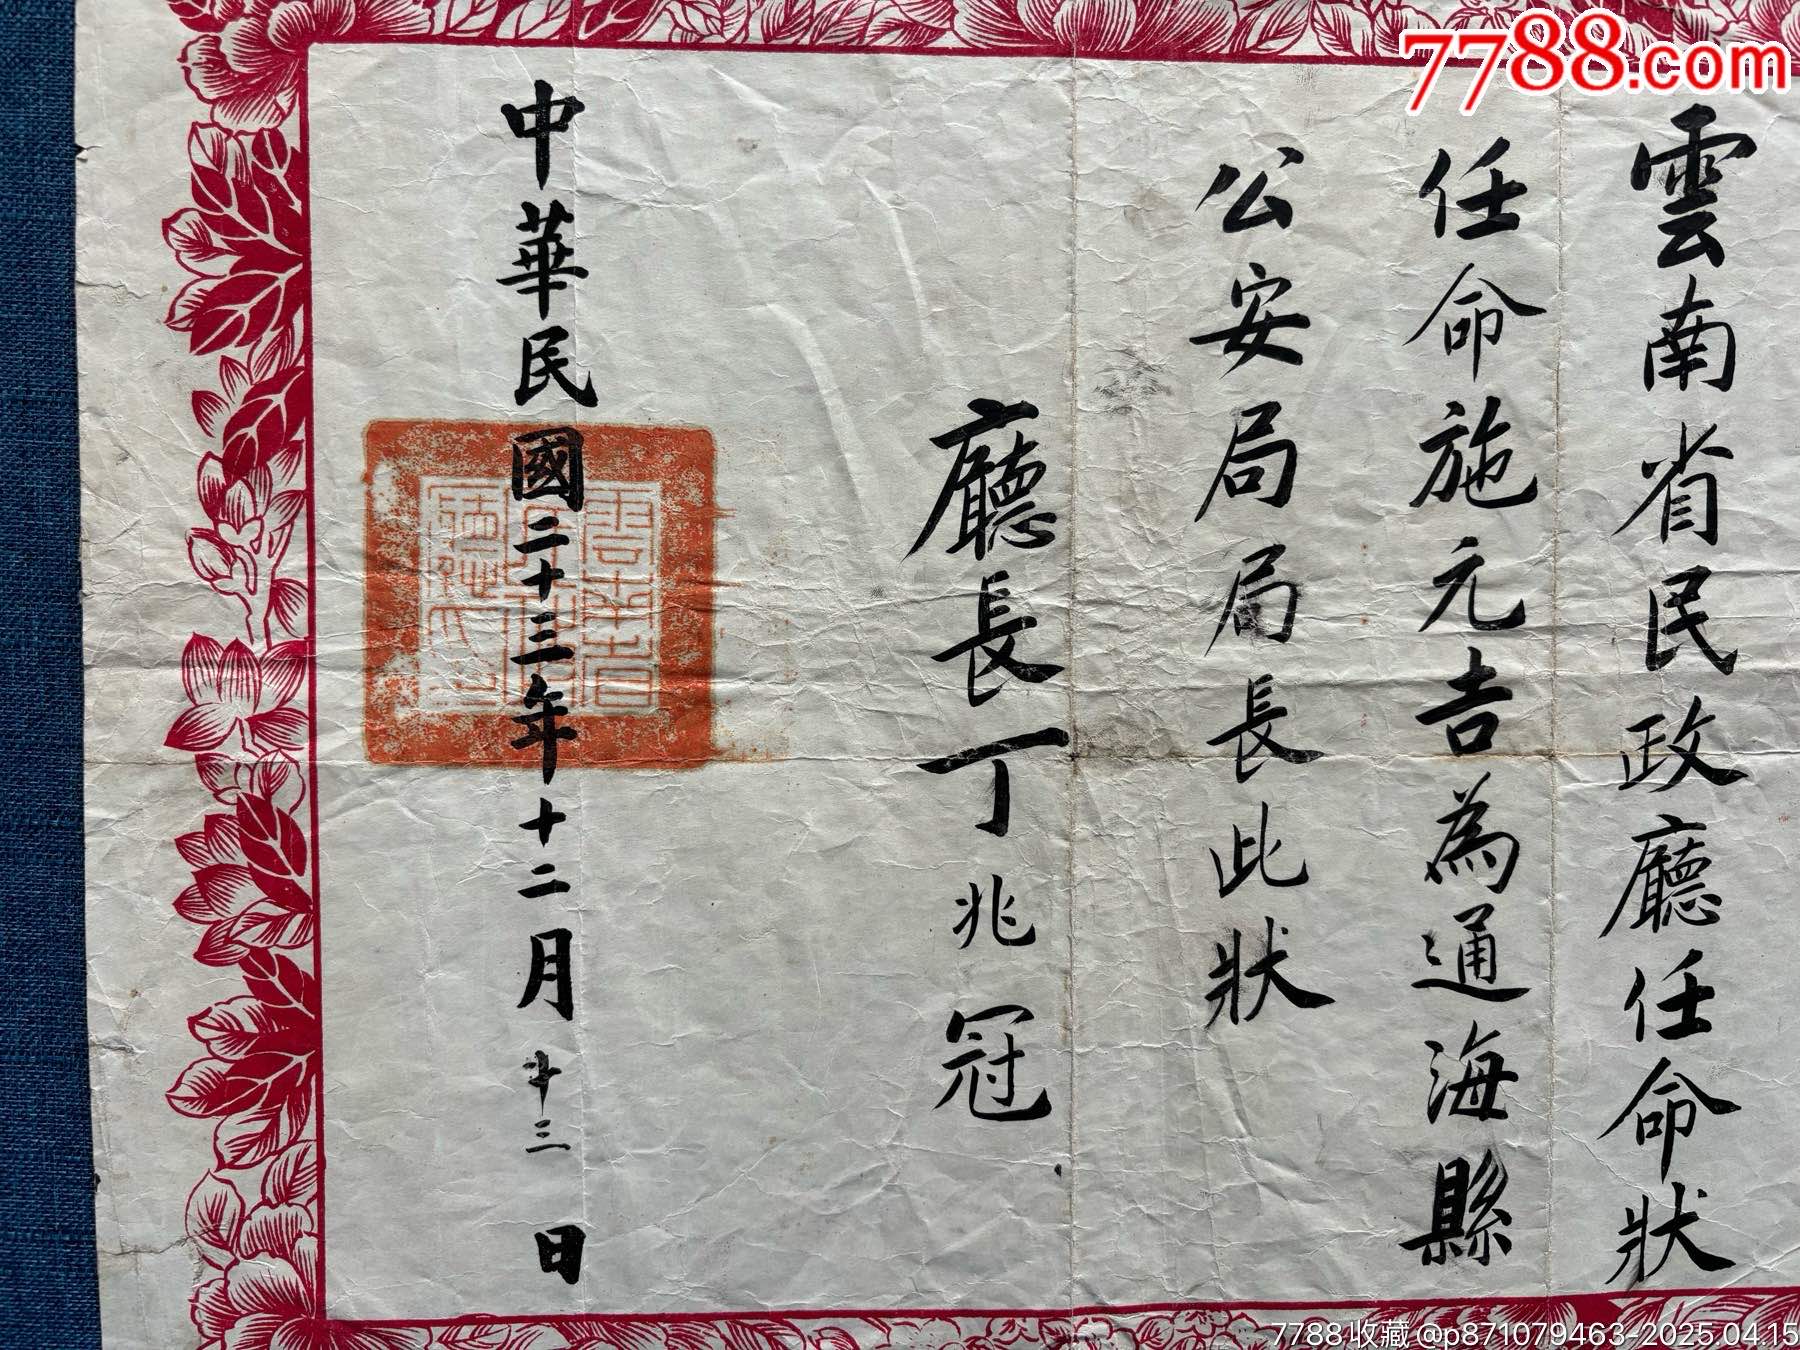 7788.com
雲南省民政廳任命狀
任命施元吉為通海縣
公安局局長此狀
廳長丁兆冠
中華民國二十三年十二月十三日
雲南省
7788收藏 @p871079463-2025.04.15